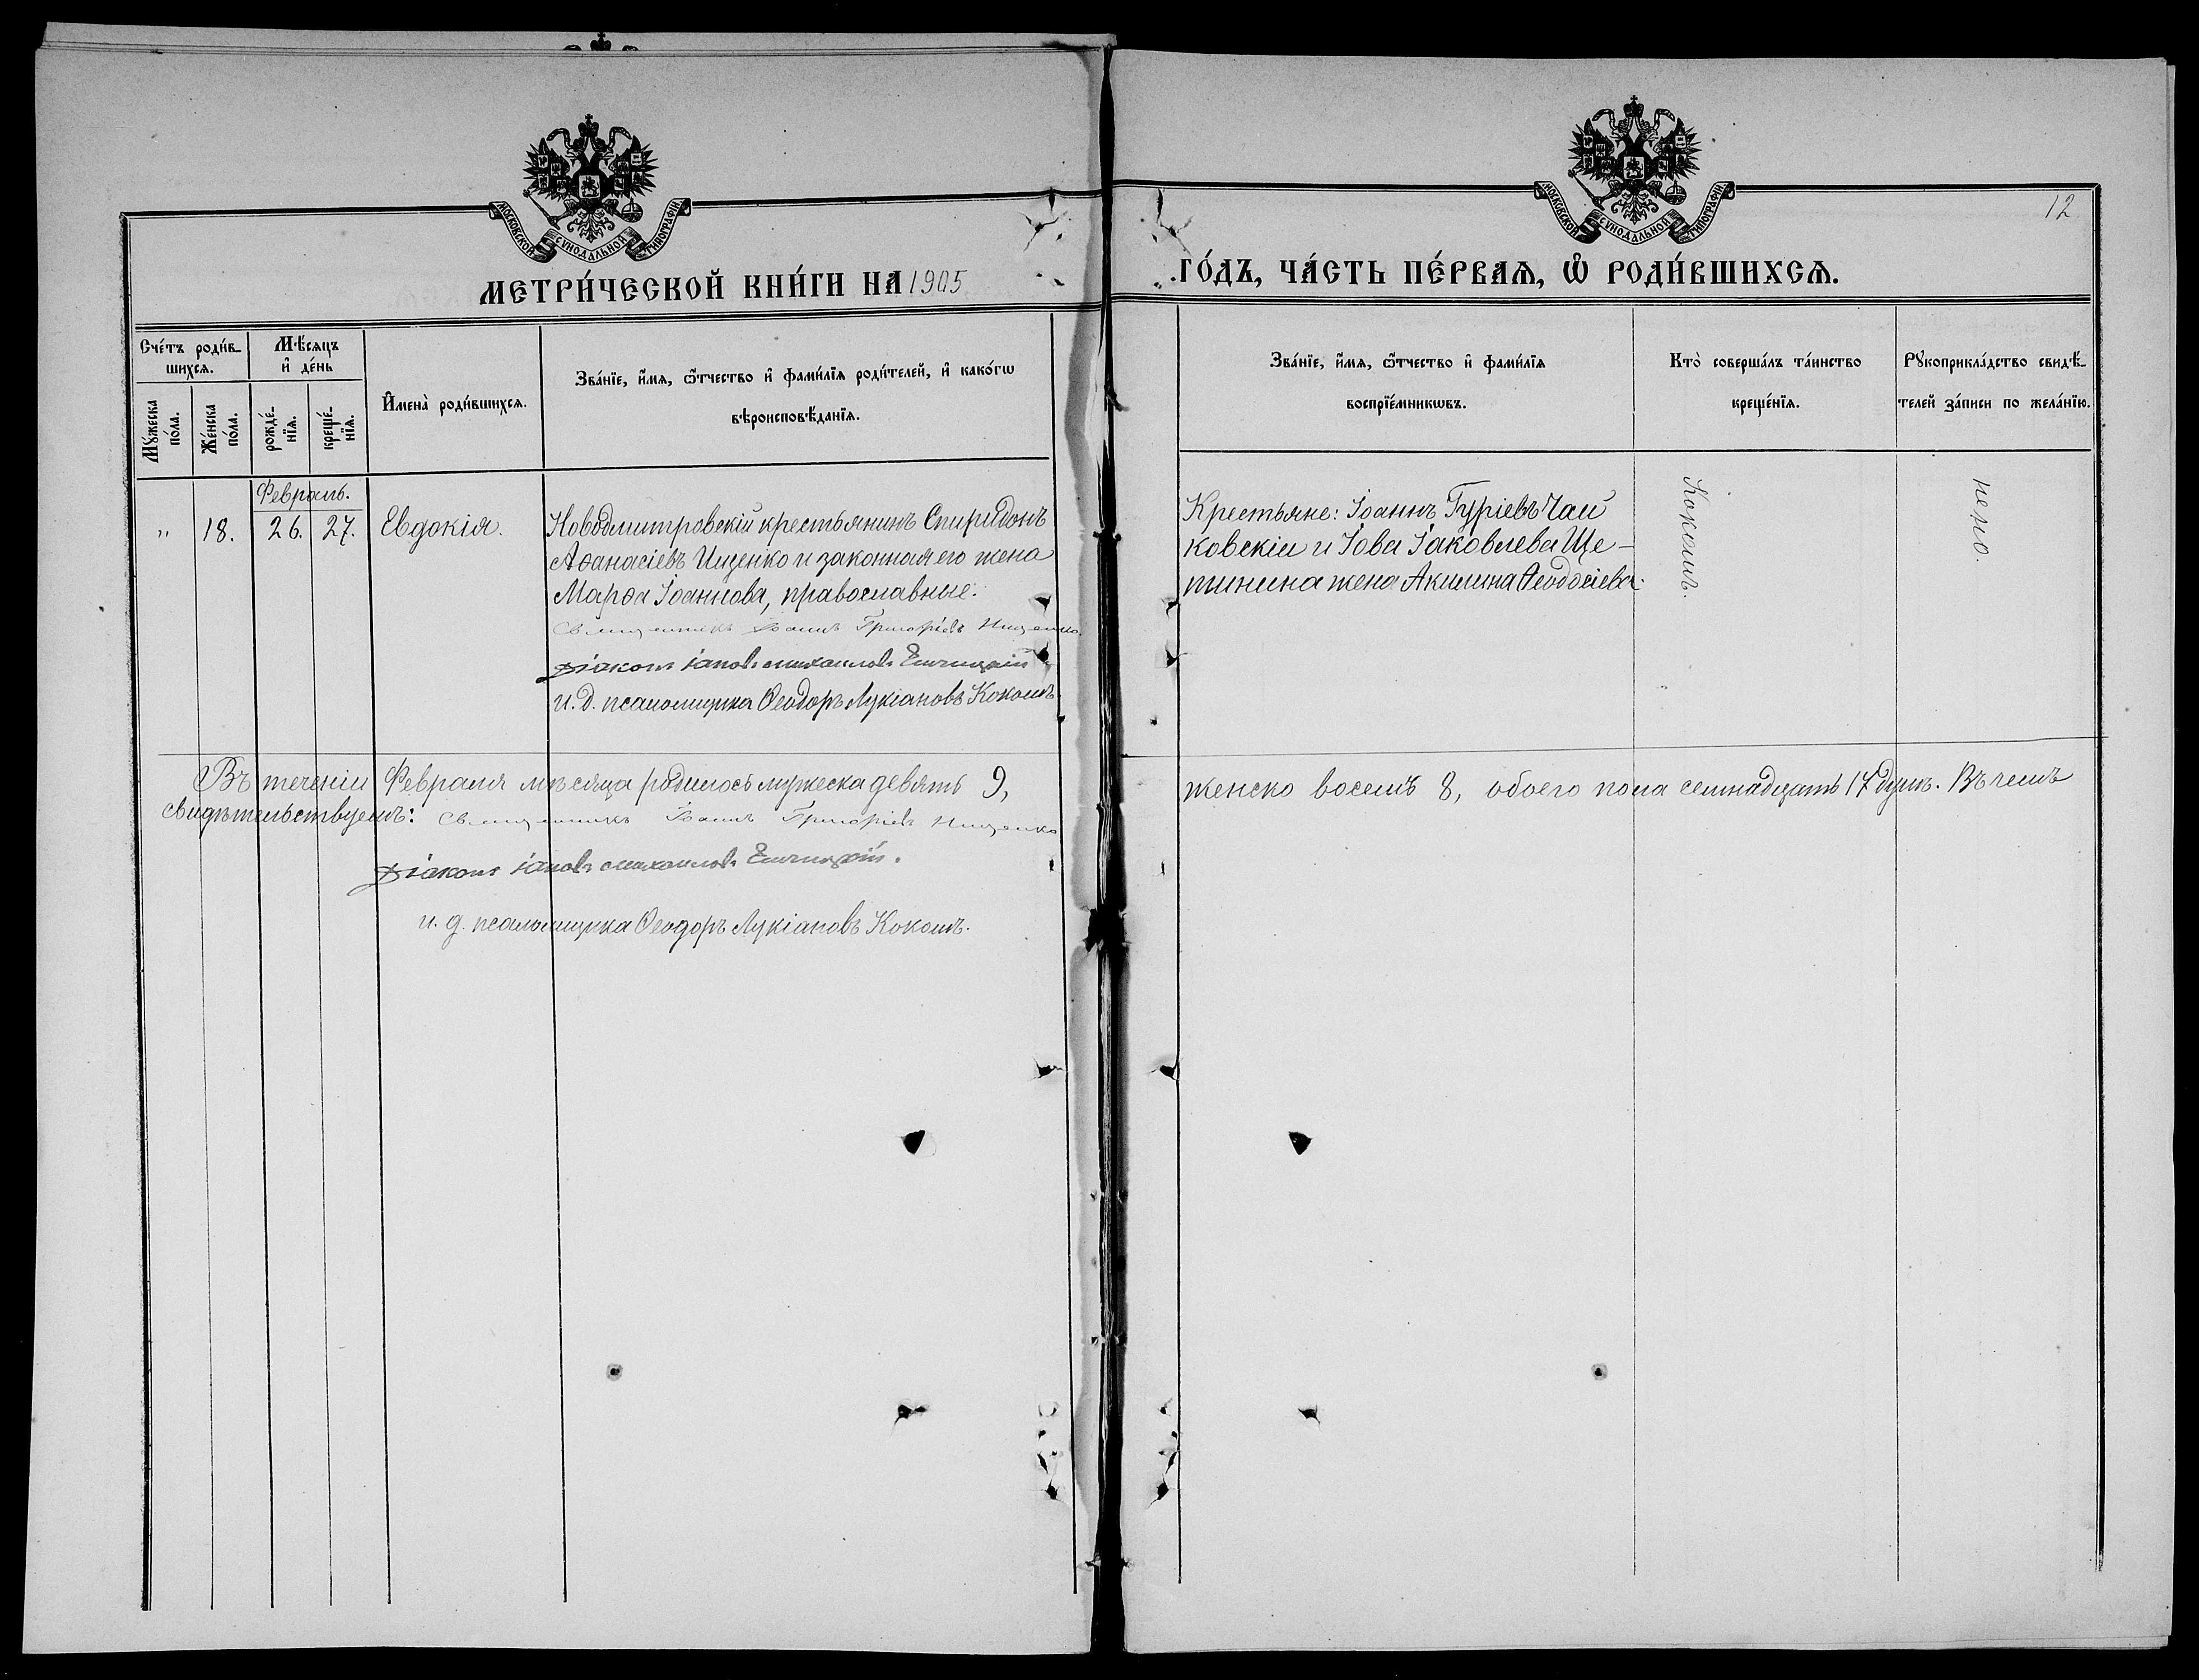 МОСКОВСКОЙ СѴНОДАЛЬНОЙ ТИПОГРАФІИ
МОСКОВСКОЙ СѴНОДАЛЬНОЙ ТИПОГРАФІИ
12
МЕТРИ́ЧЕСКОЙ КНИ́ГИ НА 1905 ГО́ДЪ, ЧА́СТЬ ПЕ́РВАѦ, Ѽ РОДИ́ВШИХСѦ.
Сче́тъ роди́в-
шихсѧ.
Мꙋ́жеска
по́ла.
Же́нска
по́ла.
Мѣ́сѧцъ
и҆ де́нь
рожде́-
нїѧ.
креще́-
нїѧ.
И҆мена̀ роди́вшихсѧ.
Зва́нїе, и҆́мѧ, ѻ҆́тчество и҆ фами́лїѧ роди́телей, и҆ како́гѡ
вѣроисповѣ́данїѧ.
Зва́нїе, и҆́мѧ, ѻ҆́тчество и҆ фами́лїѧ
воспрїе́мникѡвъ.
Кто̀ соверша́лъ та́инство
креще́нїѧ.
Рꙋкоприкла́дство свидѣ́-
телей за́писи по жела́нїю.
Февраль.
" 18. 26. 27. Евдокія.
Новодмитровскій крестьянинъ Спиридонъ
Аѳанасіевъ Ищенко и законная его жена
Марѳа Іоаннова, православные.
Священникъ Іоаннъ Григоріевъ Нищенко
Діаконъ Іаковъ Михаиловъ
и. д. псаломщика Ѳеодоръ Лукіановъ Кокошъ
Крестьяне: Іоаннъ Гуріевъ Чай
ковскій и Іова Іаковлева Ще-
тинина жена Акилина Ѳеодосіева.
Кокошъ.
нено.
Въ теченіи Февраля мѣсяца родилось мужеска девять 9, женско восемь 8, обоего пола семнадцать 17 душъ. Въ чемъ
свидѣтельствуемъ: Священникъ Іоаннъ Григоріевъ Нищенко
Діаконъ Іаковъ Михаиловъ
и. д. псаломщика Ѳеодоръ Лукіановъ Кокошъ.